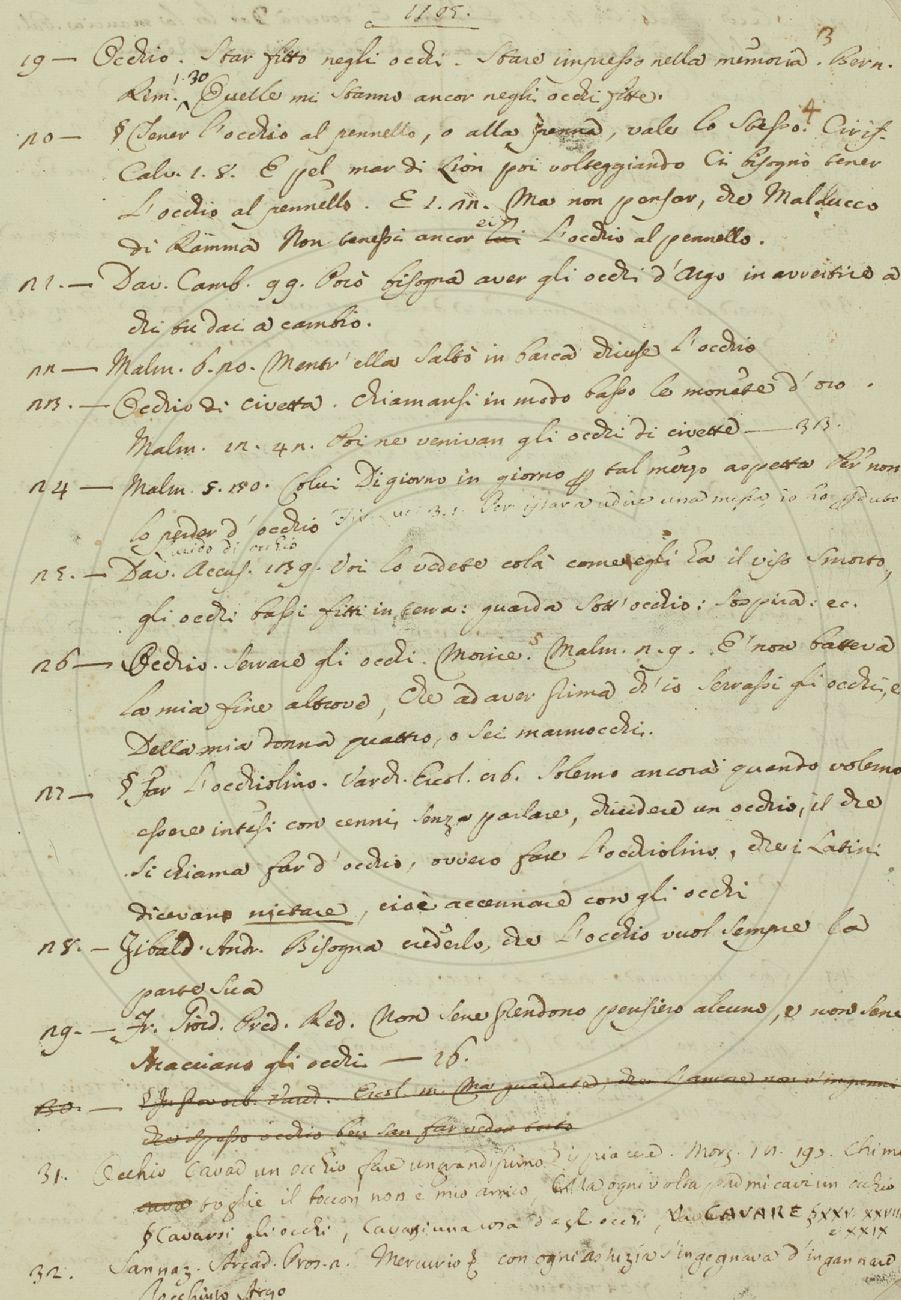 1105.
3
19 — Occhio. Star fitto negli occhi. Stare impresso nella memoria. Bern.
Rim. 30 Quelle mi stanno ancor negli occhi fitte.
20 — § Tener l'occhio al pennello, o alla penna, vale lo stesso. 4 Cirif.
Calv. 1. 8. E pel mar di Lion poi volteggiando Ci bisognò tener
L'occhio al pennello. E 1. 22. Ma non pensar, che Malducco
di Ramma Non tenessi ancor ei lui L'occhio al pennello.
21. — Dav. Camb. 99. Però bisogna aver gli occhi d'Argo in avvertire a
chi tu dai a cambio.
22 — Malm. 6. 20. Mentr'ella saltò in barca chiuse l'occhio
23. — Occhio di civetta. Chiamansi in modo basso le monete d'oro.
Malm. 12. 42. Poi ne venivan gli occhi di civetta — 33.
24 — Malm. 5. Colui Di giorno in giorno tal mergo aspetta Per non
lo perder d'occhio Per istar a udire una messa, io ho
di occhio
25. — Dav. Accus. 139. Voi lo vedete colà come egli ha il viso smorto,
gli occhi bassi fitti in terra: guarda sott'occhio: sospira: ec.
26 — Occhio. Serrare gli occhi. Morire. 5 Malm. 2. 9. E' non batteva
la mia fine altrove, Che ad aver stima ch'io serrassi gli occhi, e
Della mia donna quattro, o sei marmocchi.
27 — § Far l'occhiolino. Varch. Ercol. 96. Solemo ancora quando volemo
essere intesi con cenni, senza parlare, chiudere un occhio, il che
si chiama far d'occhio, ovvero fare l'occhiolino, che i Latini
dicevano nictare, cioè accennare con gli occhi
28. — Zibald. Andr. Bisogna crederlo, che l'occhio vuol sempre la
parte sua
29. — Fr. Giord. Pred. Red. Non sene prendono pensiero alcuno, e non sene
stracciano gli occhi — 26.
30. — Varch. Ercol. Ma guardate, che l'amore non v'inganni
che spesso occhio ben san far veder torto
31. Occhio Cavar un occhio fare un grandissimo dispiacere. Morg. 19. Chi mi
cava toglie il boccon non è mio amico, Ma ogni volta par mi cavi un occhio
§ Cavarsi gli occhi, Cavarsi una cosa dagl occhi, V. CAVARE § XXV. XXVIII
e XXIX
32. Sannaz. Arcad. Pros. 2. Mercurio con ogni astuzia s'ingegnava d'ingannare
Argo